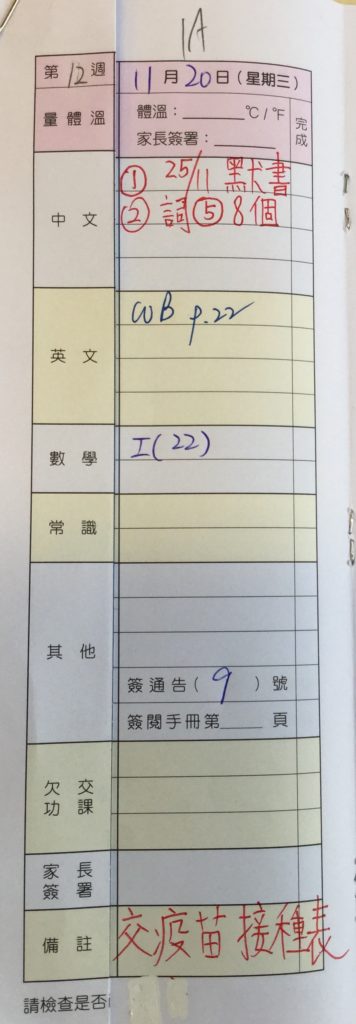 1A
第12週 11月20日(星期三)
量體溫 體溫：______°C/°F 完成
家長簽署：______
中文 ① 25/11 默書
② 詞⑤ 8個
英文 WB p.22
數學 I(22)
常識
其他
簽通告( 9 )號
簽閱手冊第____頁
欠交功課
家長簽署
備註 交疫苗接種表
請檢查是否